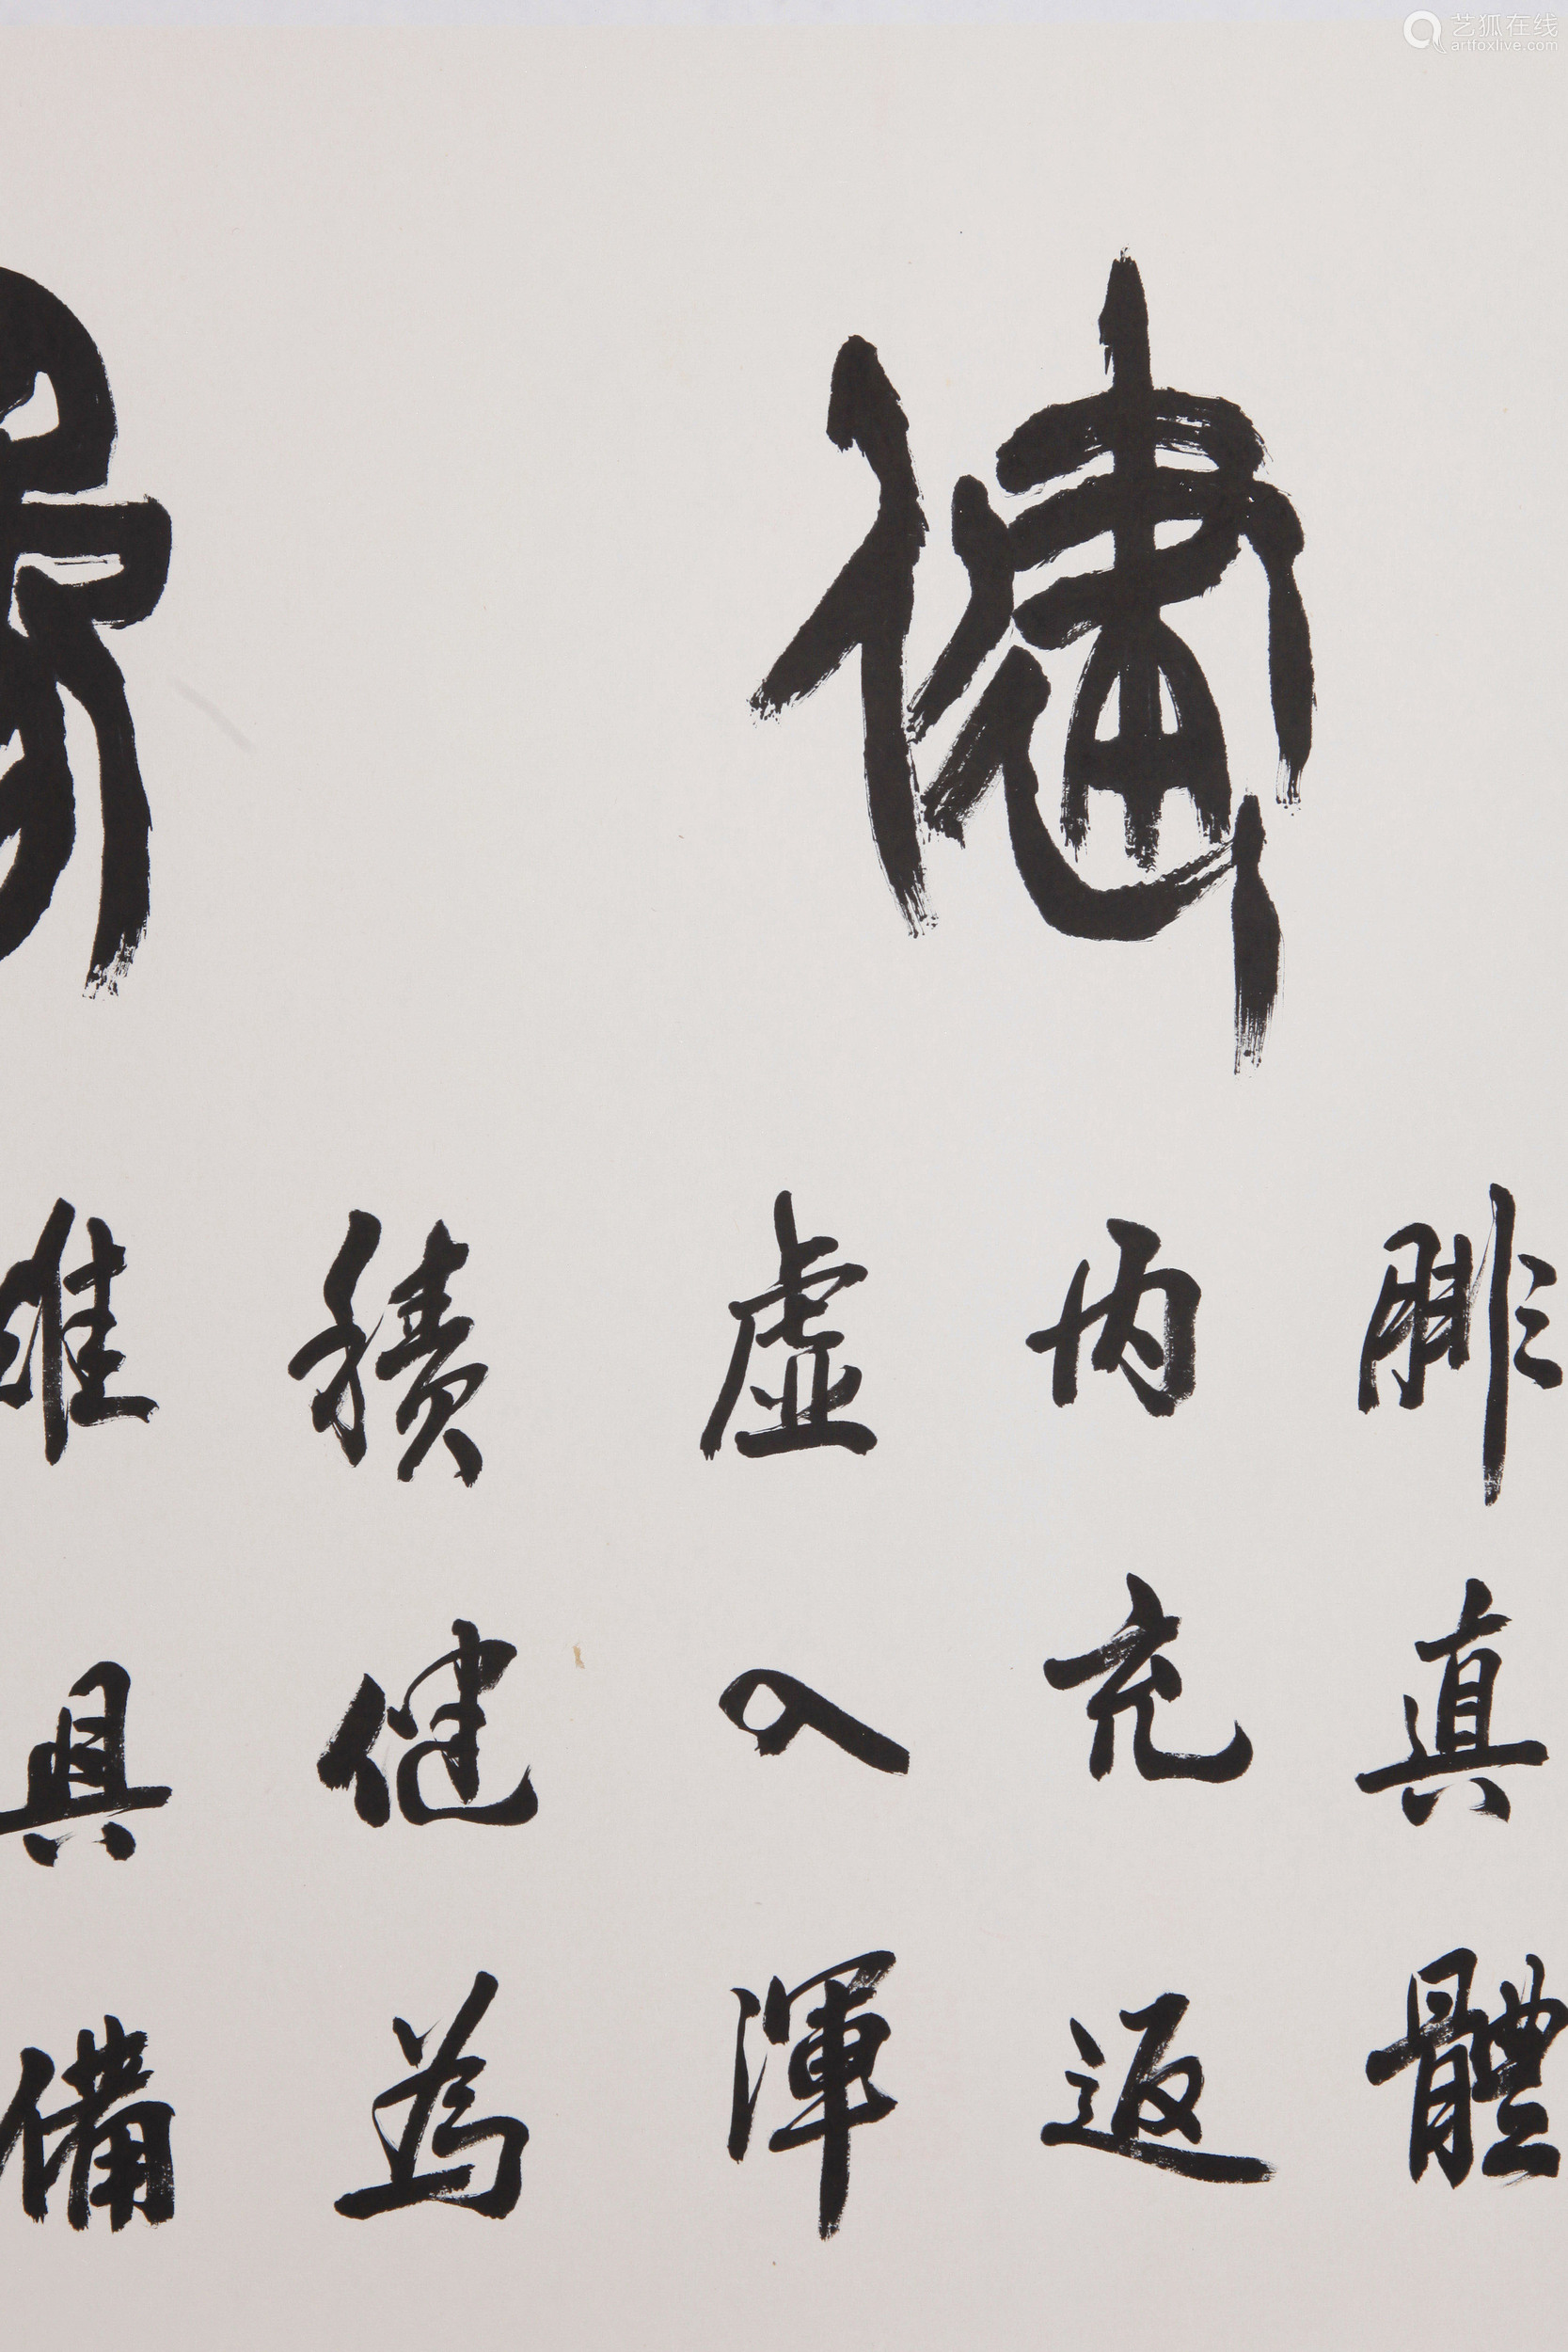 健
腓真體
内充返
虛入渾
積健為
雄具備
艺狐在线
artfoxlive.com